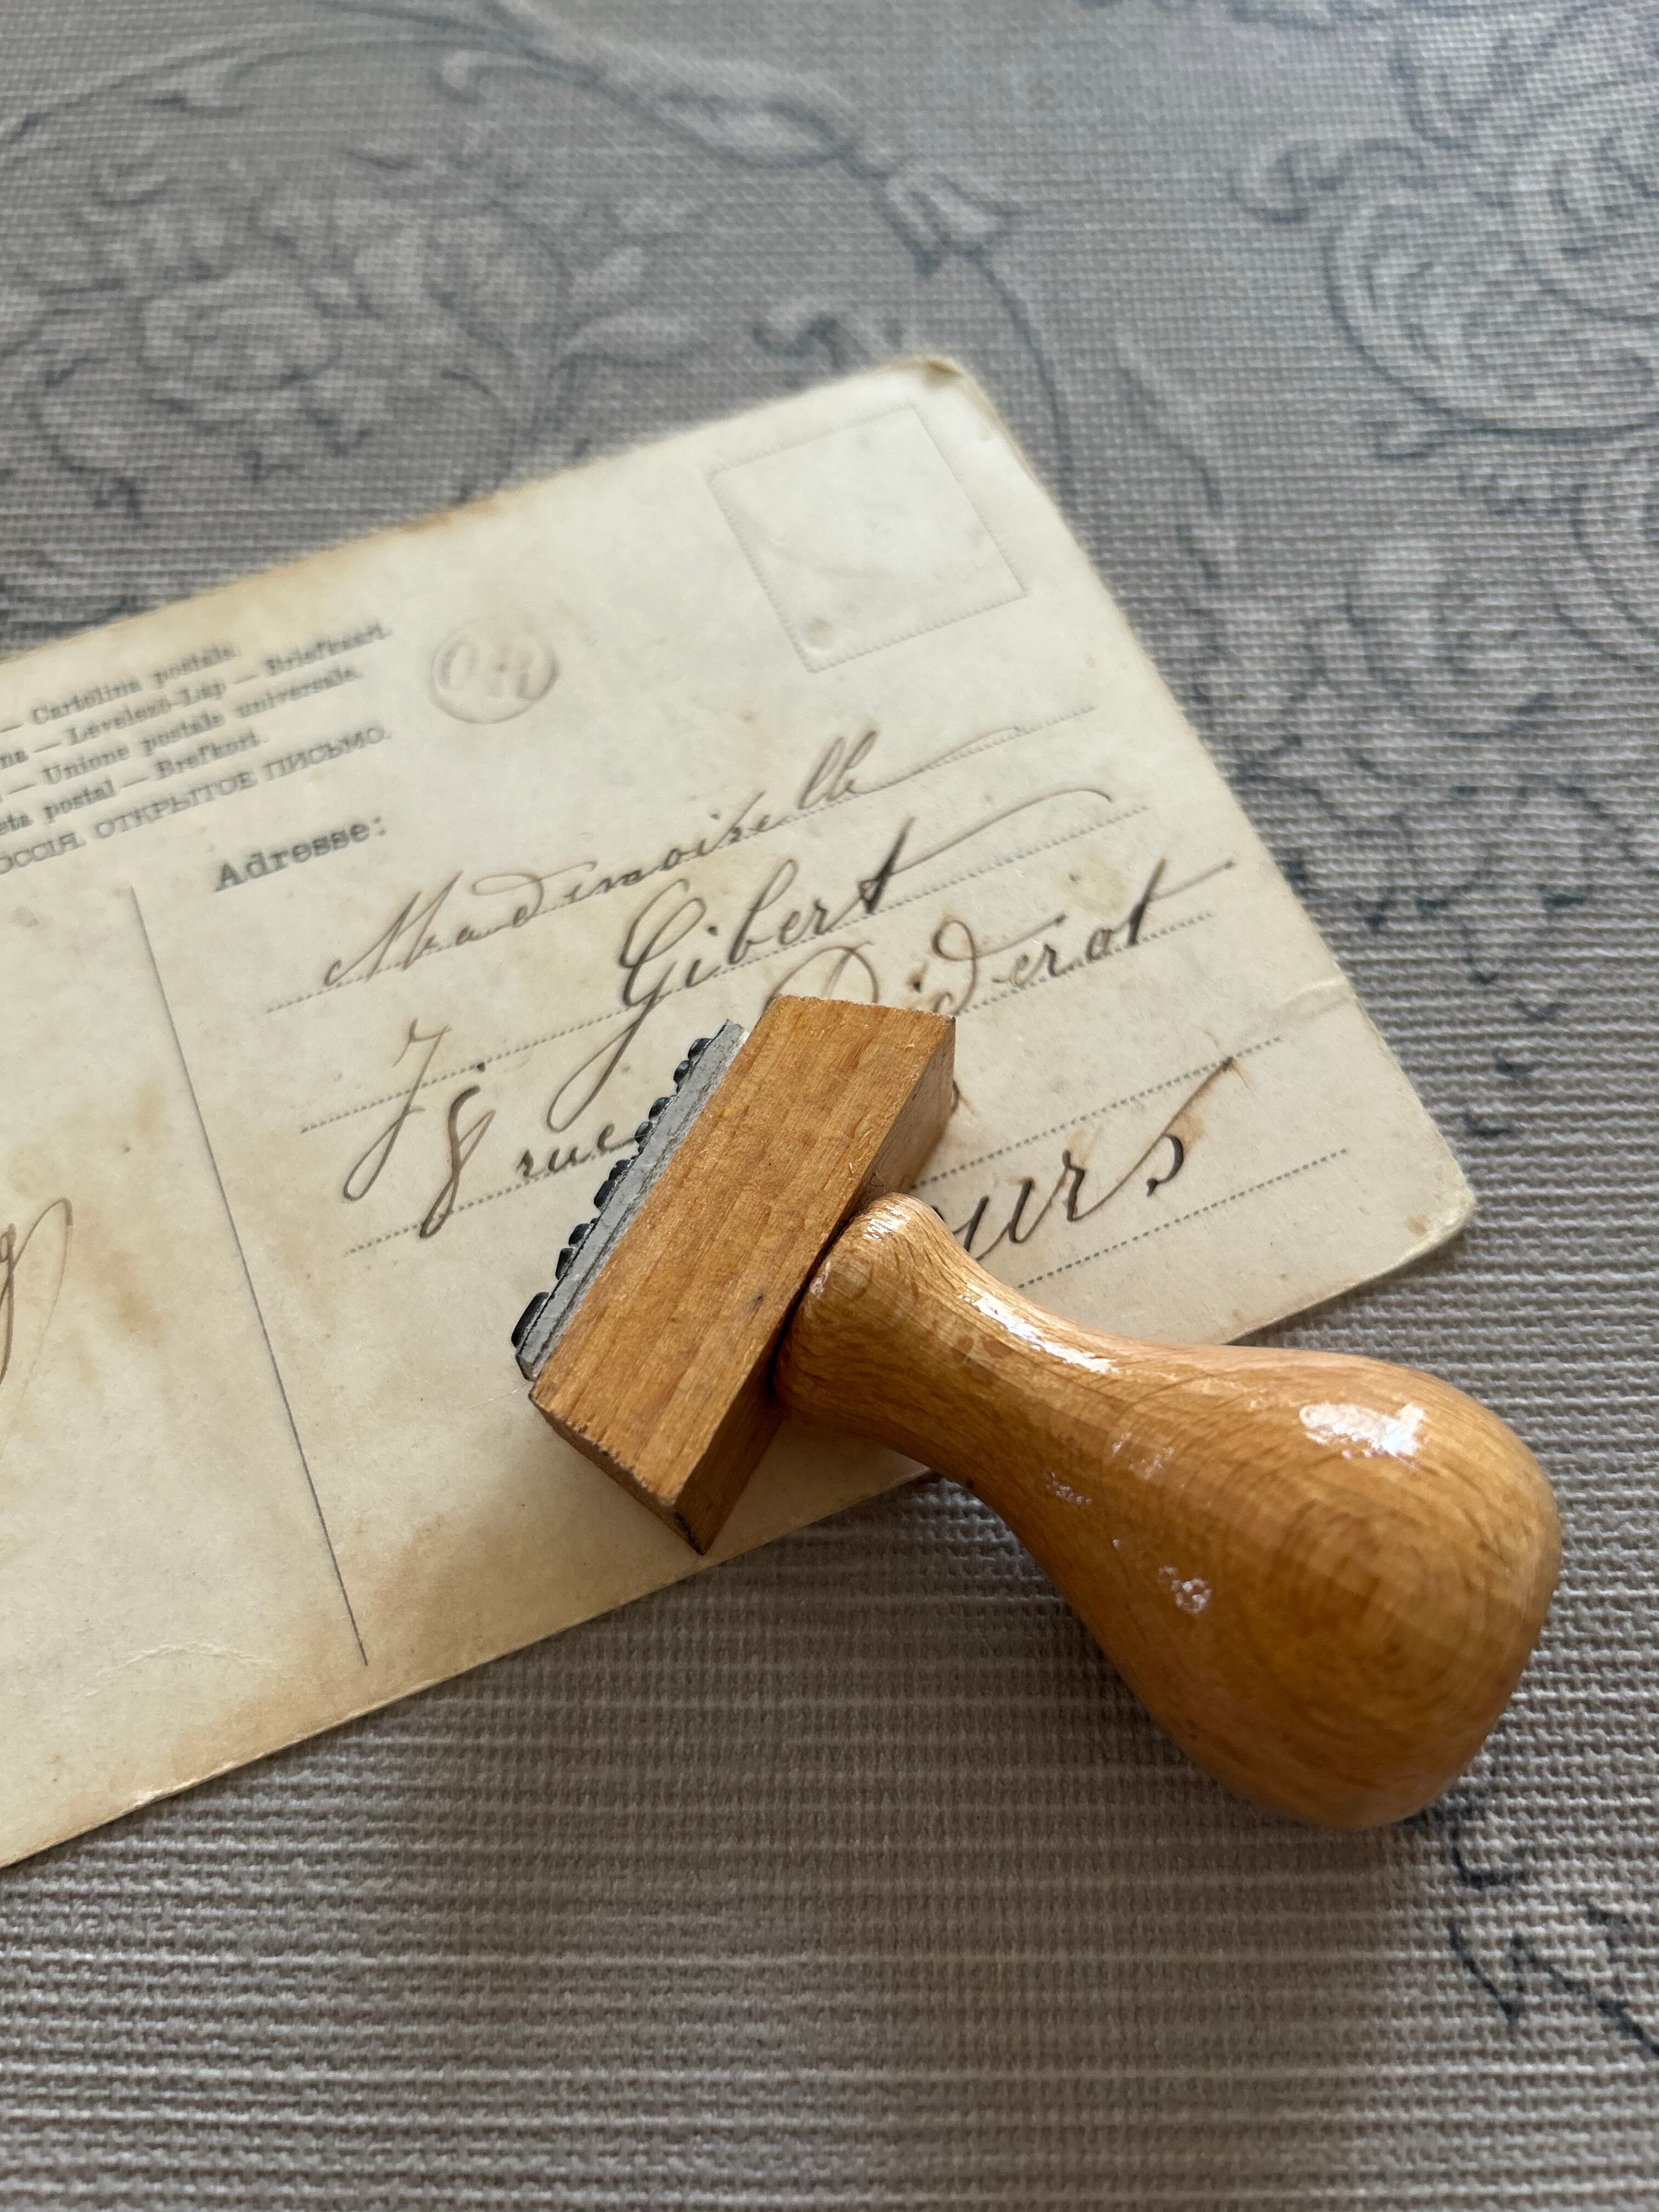 — Cartolina postale.
na — Levelező-Lap — Briefkaart.
— Unione postale universale.
eta postal — Brefkort.
ОССІЯ. ОТКРЫТОЕ ПИСЬМО.
Adresse:
Mademoiselle
J. Gibert
8 rue Diderot
ours